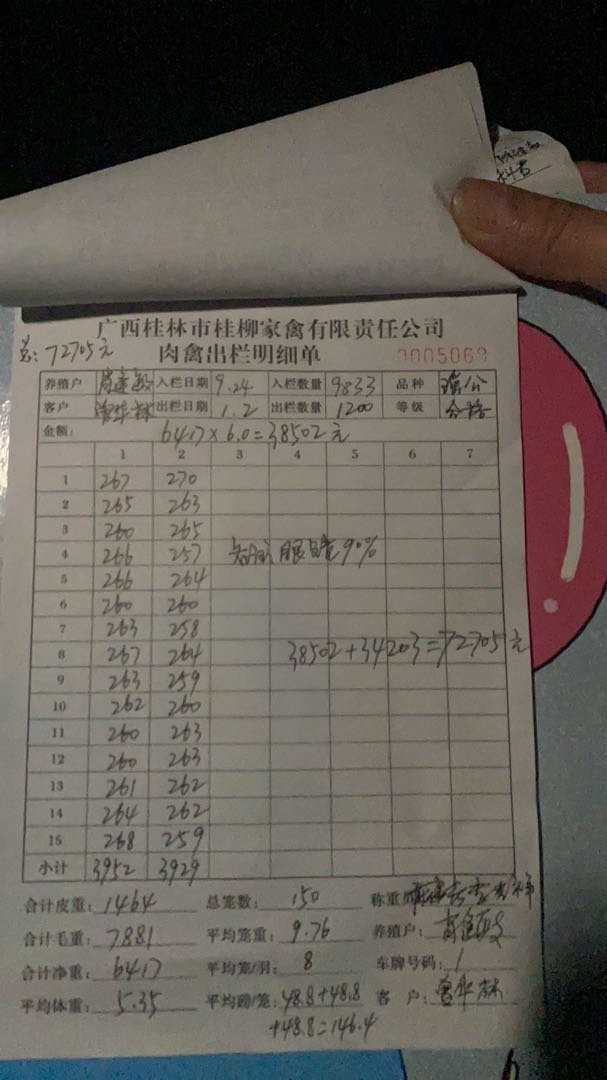 广西桂林市桂柳家禽有限责任公司
总:72705元
肉禽出栏明细单 0005069
养殖户 入栏日期 9.24 入栏数量 9833 品种
客户 出栏日期 1.2 出栏数量 1200 等级 合格
金额: 6417×6.0=38502元
1 2 3 4 5 6 7
1 267 270
2 265 263
3 260 265
4 266 257 90%
5 266 264
6 260 260
7 263 258
8 267 264 38502+34203=72705元
9 263 259
10 262 260
11 260 263
12 260 263
13 261 262
14 264 262
15 268 259
小计 3952 3929
合计皮重: 1464 总笼数: 150 称重员:
合计毛重: 7881 平均笼重: 9.76 养殖户:
合计净重: 6417 平均笼/羽: 8 车牌号码: 1
平均体重: 5.35 平均磅/笼: 48.8+48.8 客 户:
+48.8=146.4